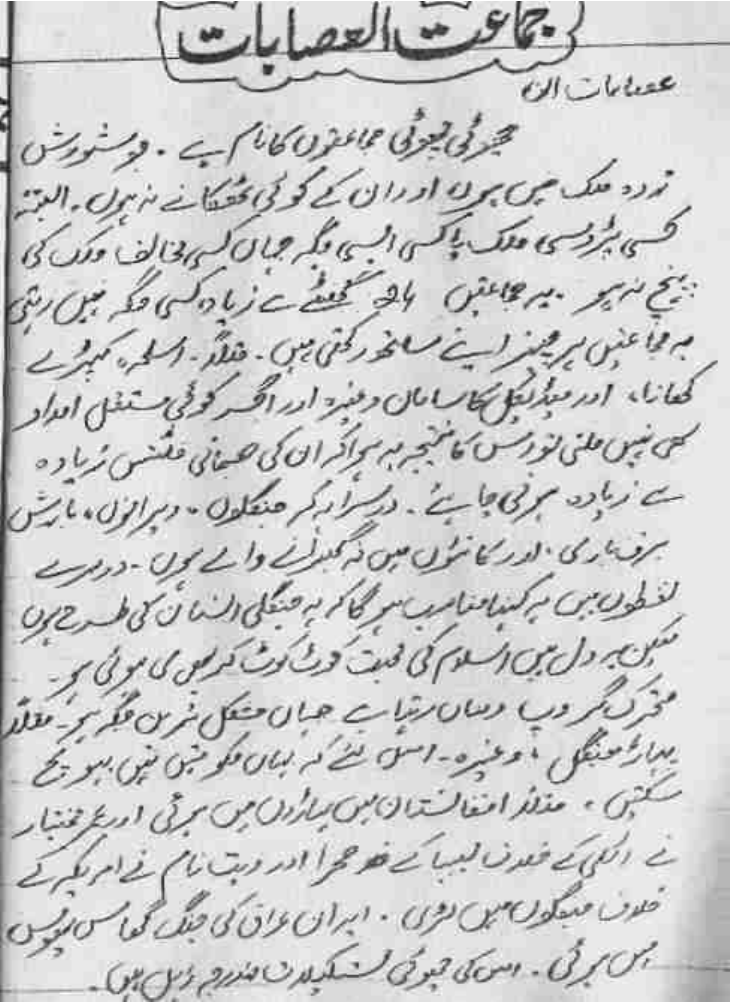 جماعت العصابات
عصابات ان
چھوٹی چھوٹی جماعتوں کا نام ہے ۔ جو شورش
زدہ ملک میں ہوں اور ان کے کوئی ٹھکانے نہ ہوں ۔ البتہ
کسی پڑوسی ملک یا کسی ایسی جگہ جہاں کسی مخالف ورک کی
پہنچ نہ ہو ۔ یہ جماعتیں 24 گھنٹے سے زیادہ کسی جگہ نہیں رہتی
یہ جماعتیں ہر چیز اپنے ساتھ رکھتی ہیں ۔ مثلاً ۔ اسلحہ، کپڑے
کھانا، اور میڈیکل کا سامان وغیرہ اور اگر کوئی مستقل امداد
بھی نہیں ملتی تو اس کا نتیجہ یہ ہوا کہ ان کی جسمانی فٹنس زیادہ
سے زیادہ ہونی چاہیئے ۔ دوسرا یہ کہ جنگلوں، ویرانوں، بارش
برف باری، اور کانٹوں میں نہ گھبرانے والے ہوں ۔ دوسرے
لفظوں میں یہ کہنا مناسب ہو گا کہ یہ جنگلی انسان کی طرح ہوں
لیکن یہ دل میں اسلام کی محبت کوٹ کوٹ کر بھری ہوئی ہو ۔
متحرک گروپ وہاں رہتا ہے جہاں مشکل ترین جگہ ہو ۔ مثلاً
پہاڑ، جنگل، وغیرہ ۔ اس لئے کہ یہاں حکومتیں نہیں پہونچ
سکتیں ۔ مثلاً افغانستان میں پہاڑوں میں ہوئی اور عمر مختار
نے اٹلی کے خلاف لیبیا کے صحرا اور ویتنام نے امریکہ کے
خلاف جنگلوں میں لڑی ۔ ایران عراق کی جنگ گھاس پھونس
میں ہوئی ۔ اس کی چھوٹی تشکیلات مندرجہ ذیل ہیں ۔